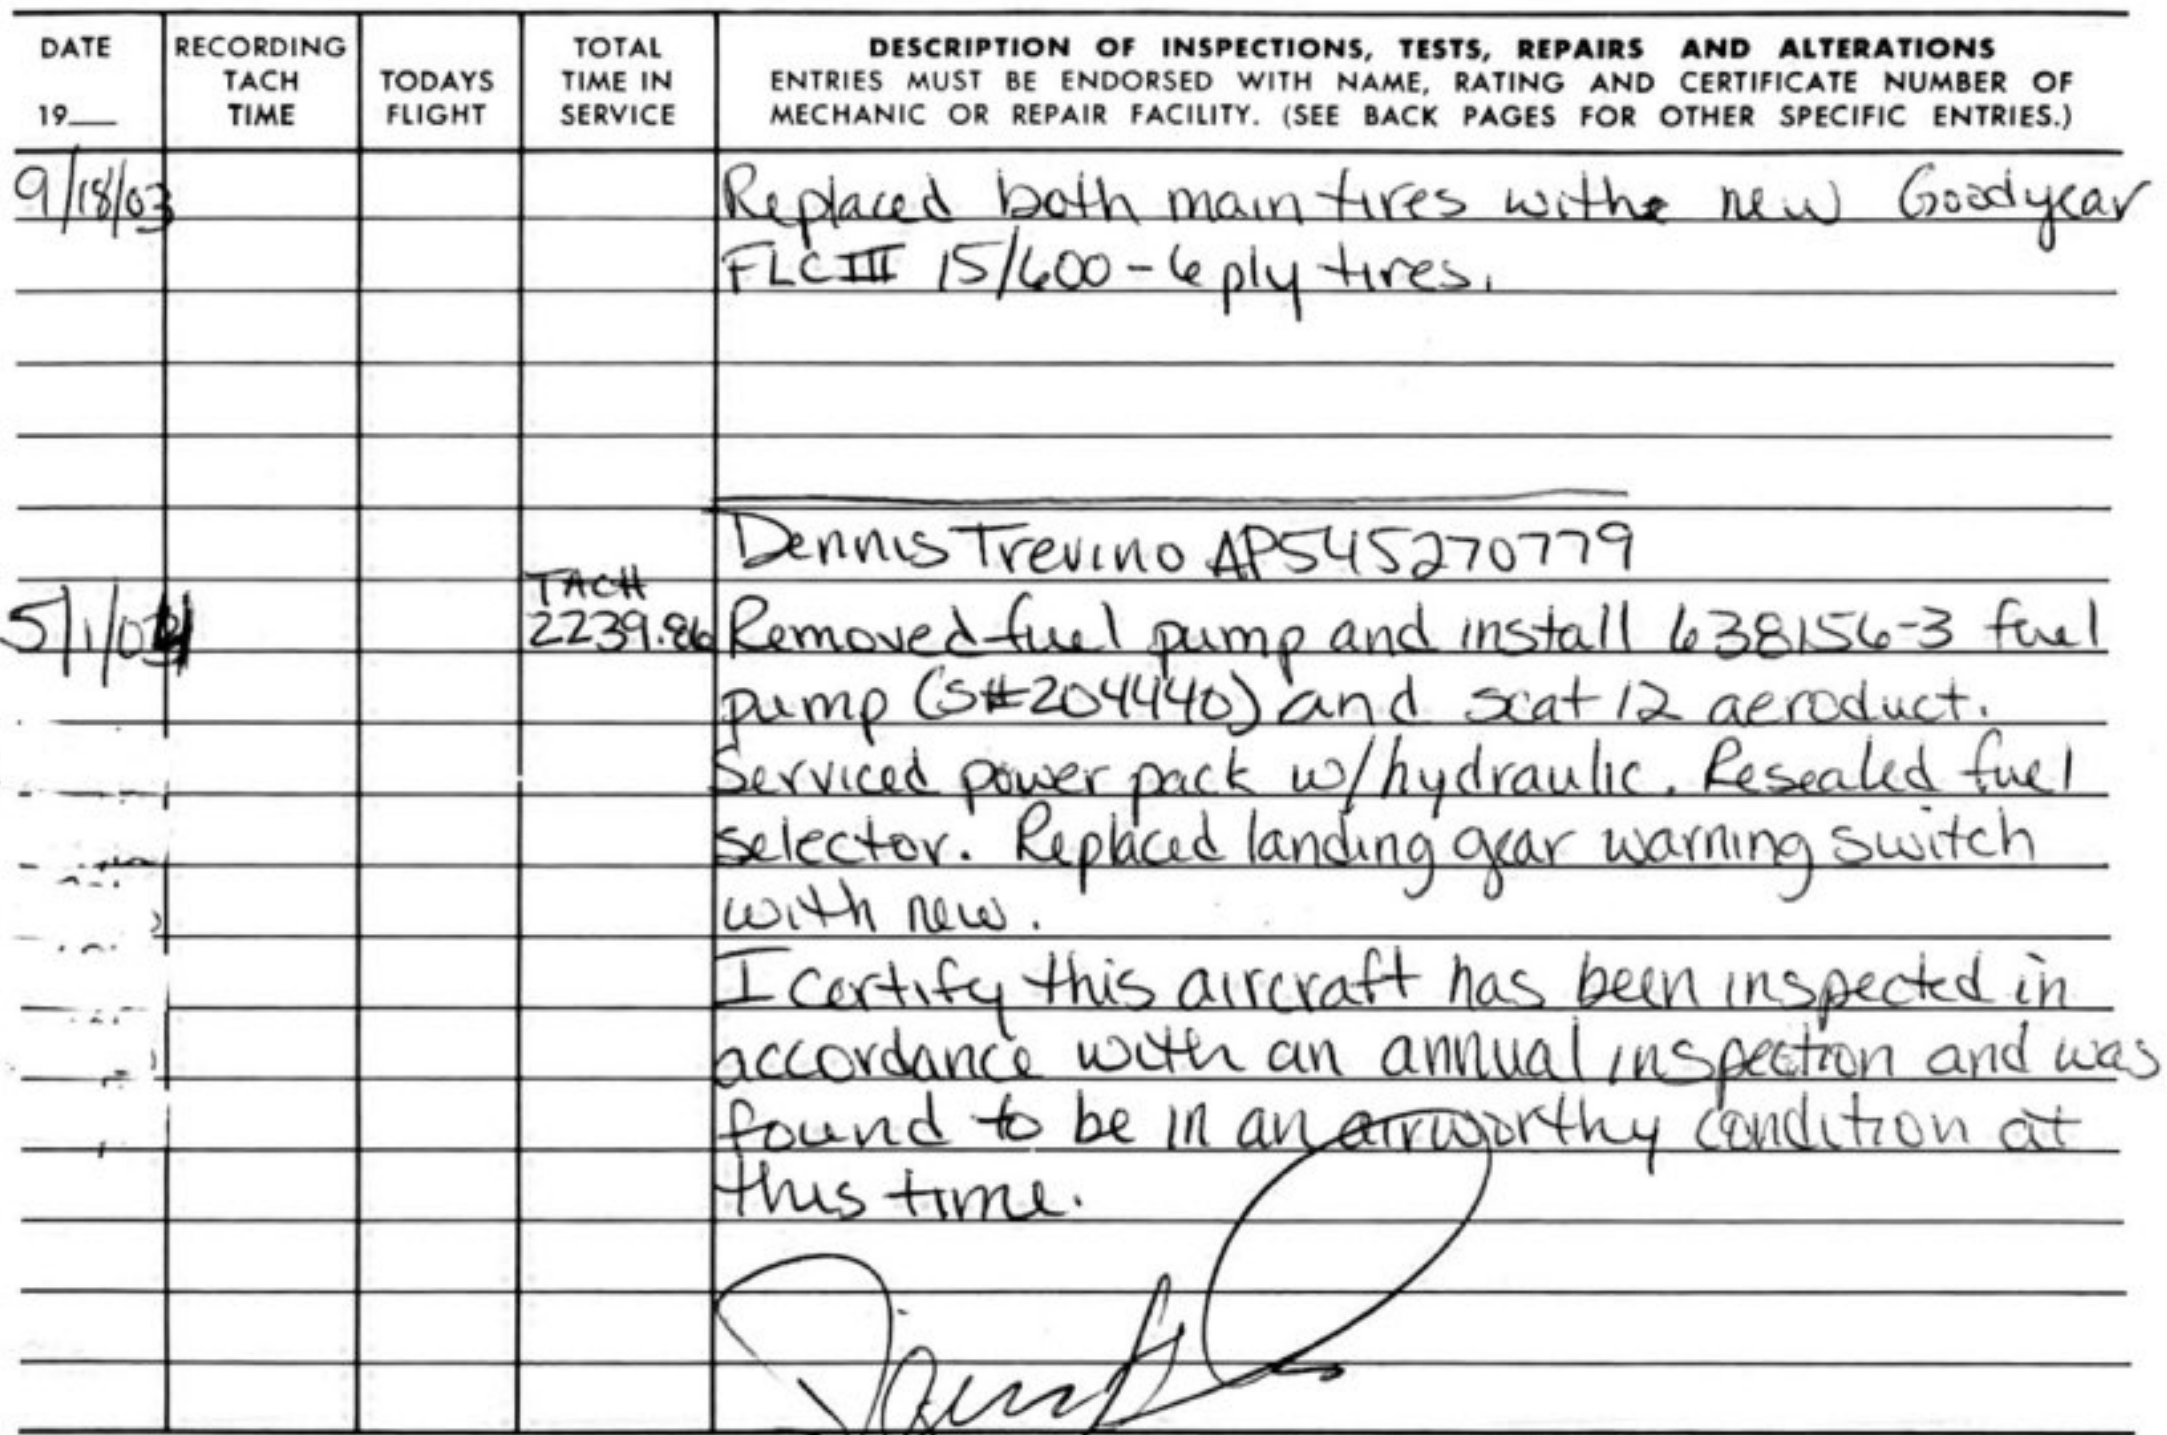 DATE
19__
RECORDING
TACH
TIME
TODAYS
FLIGHT
TOTAL
TIME IN
SERVICE
DESCRIPTION OF INSPECTIONS, TESTS, REPAIRS AND ALTERATIONS
ENTRIES MUST BE ENDORSED WITH NAME, RATING AND CERTIFICATE NUMBER OF
MECHANIC OR REPAIR FACILITY. (SEE BACK PAGES FOR OTHER SPECIFIC ENTRIES.)
9/18/03
Replaced both main tires with new Goodyear
FLC III 15/600-6 ply tires.
Dennis Trevino AP545270779
5/1/04
TACH
2239.86
Removed fuel pump and install 638156-3 fuel
pump (S#204440) and scat 12 aeroduct.
Serviced power pack w/hydraulic. Resealed fuel
selector. Replaced landing gear warning switch
with new.
I certify this aircraft has been inspected in
accordance with an annual inspection and was
found to be in an airworthy condition at
this time.